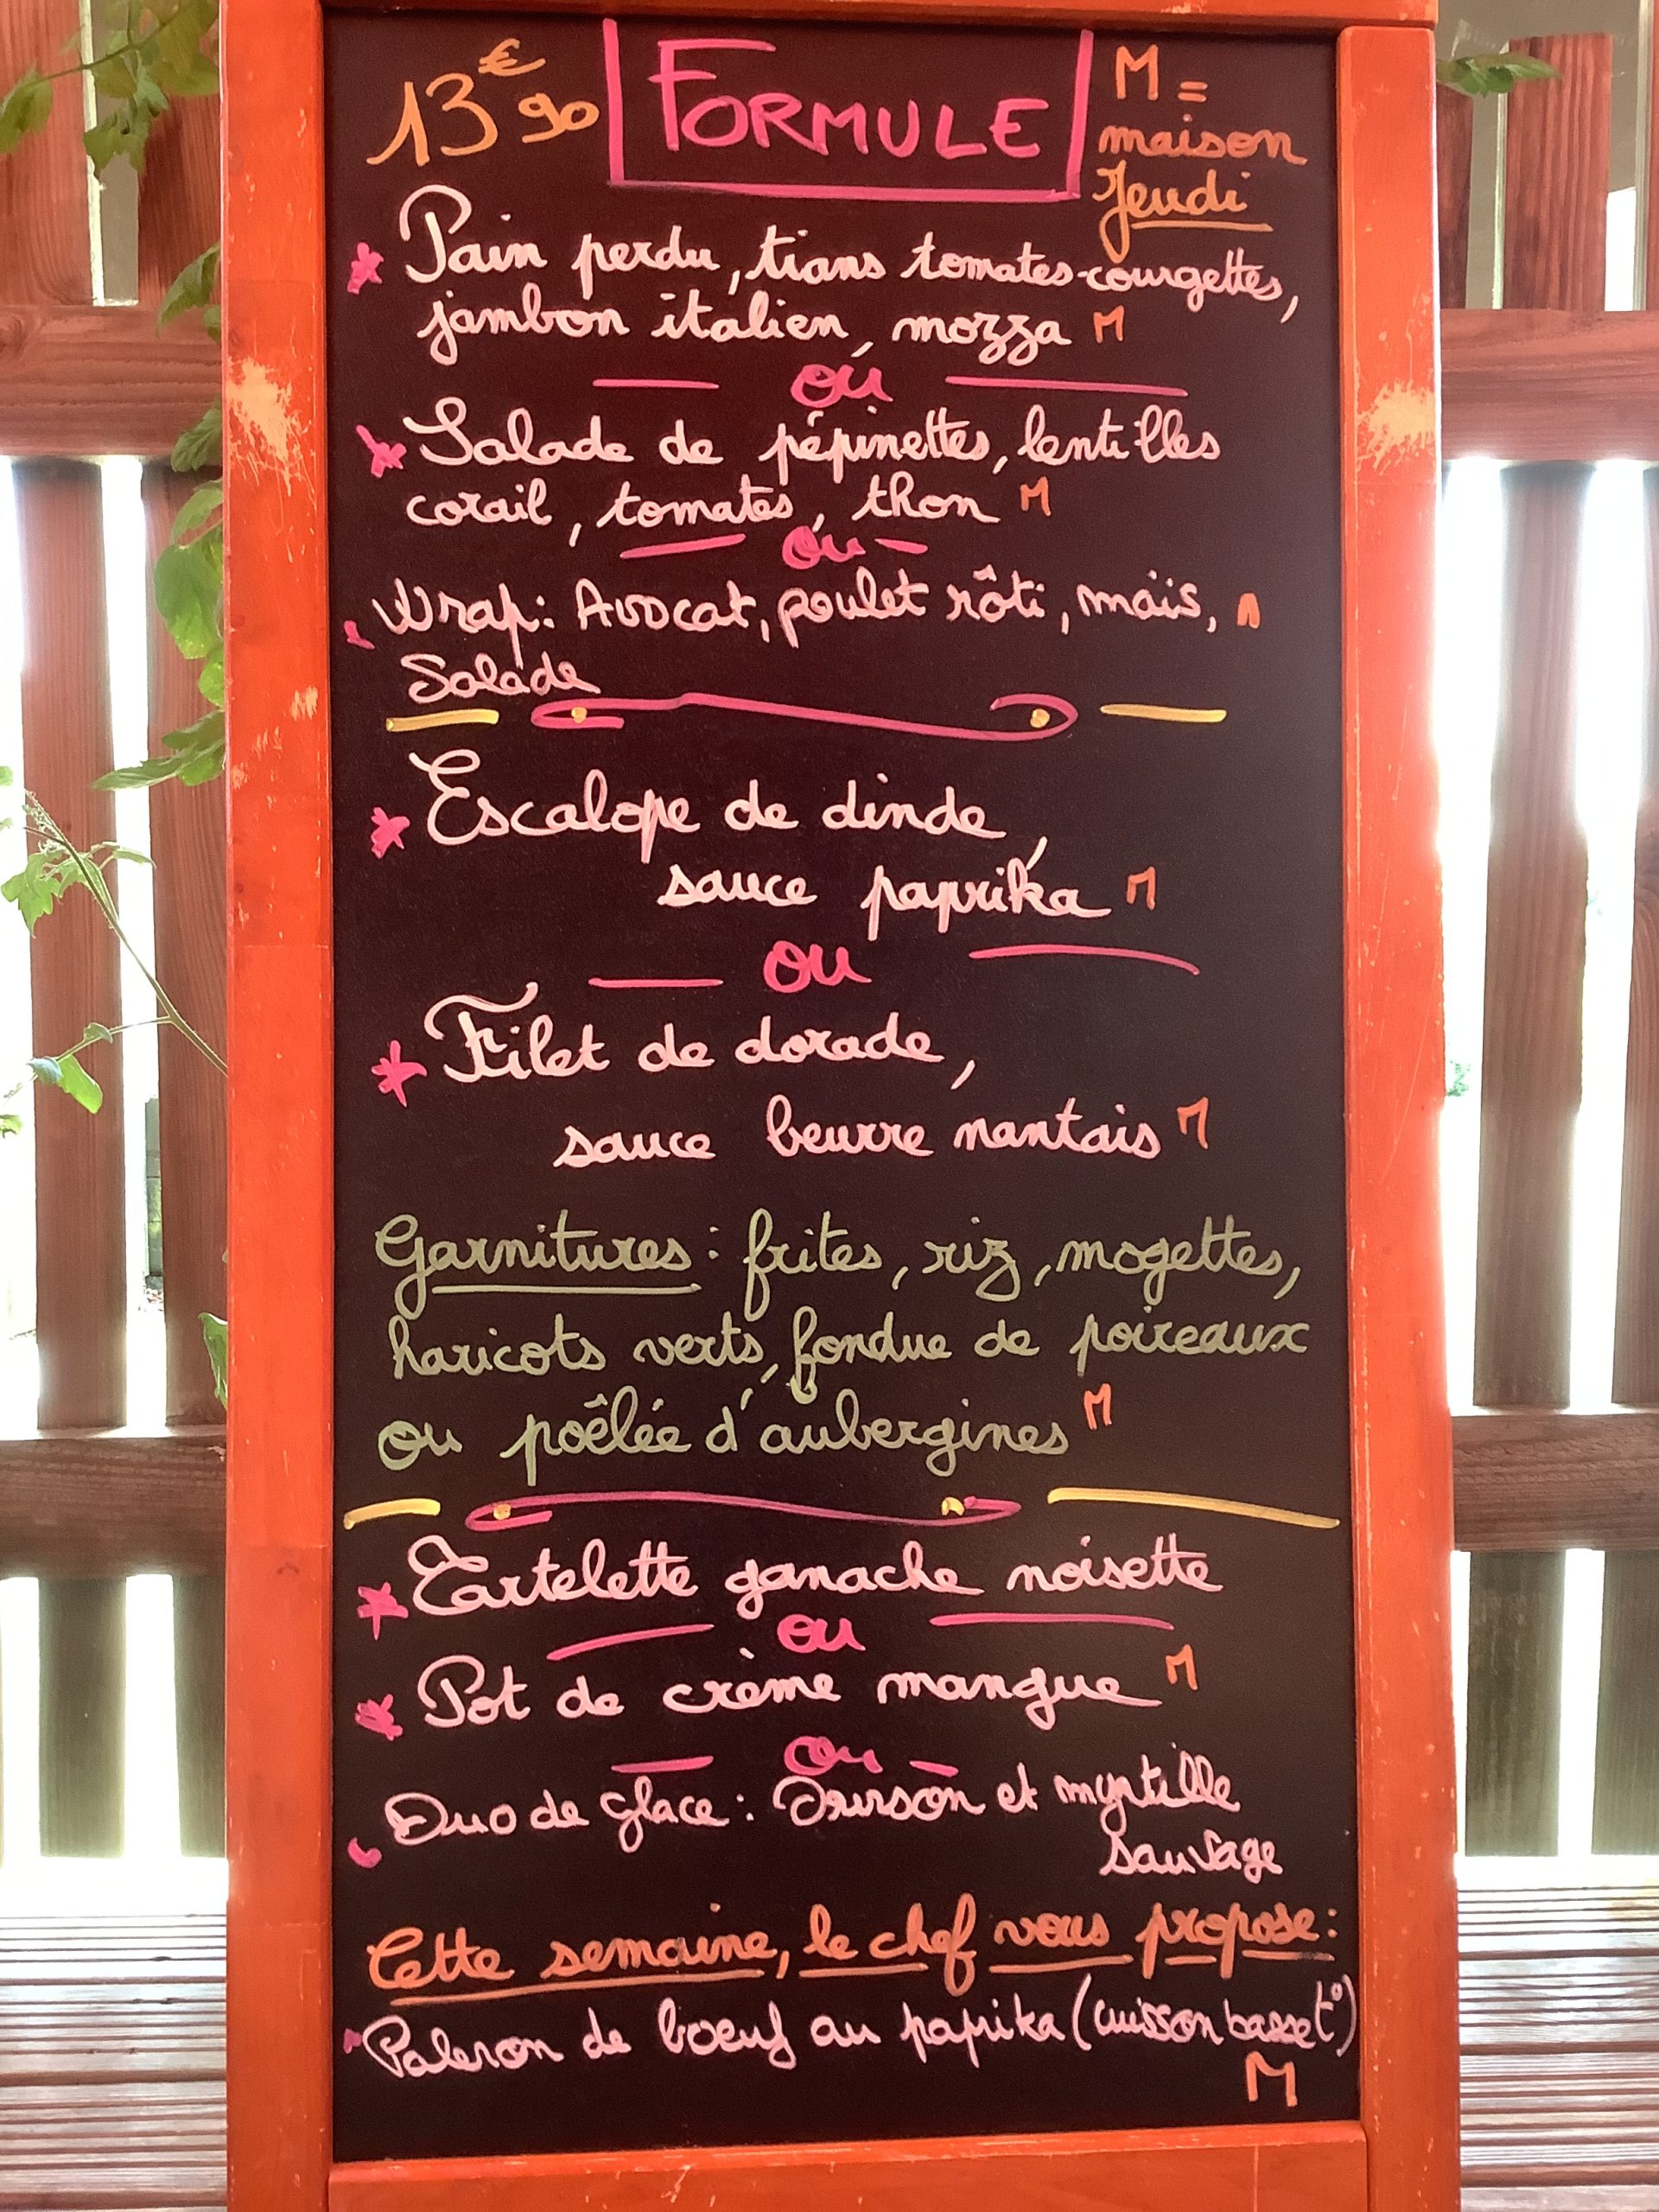 13€90 FORMULE M =
maison
Jeudi
Pain perdu, tians tomates-courgettes,
jambon italien, mozza M
ou
Salade de pépinettes, lentilles
corail, tomates, thon M
ou
Wrap: Avocat, poulet rôti, maïs, M
Salade
Escalope de dinde,
sauce paprika M
ou
Filet de dorade,
sauce beurre nantais M
Garnitures : frites, riz, mogettes,
haricots verts, fondue de poireaux
ou poêlée d'aubergines M
Tartelette ganache noisette
ou
Pot de crème mangue M
ou
Duo de glace : Ourson et myrtille
sauvage
Cette semaine, le chef vous propose :
Paleron de boeuf au paprika (cuisson basse t°)
M